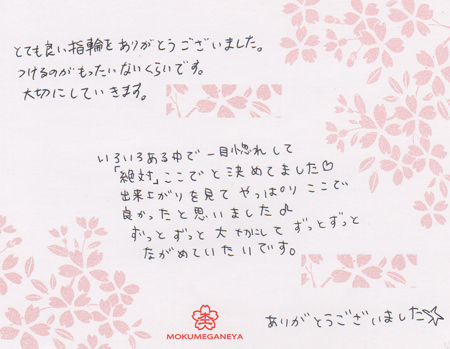 とても良い指輪をありがとうございました。
つけるのがもったいないくらいです。
大切にしていきます。
いろいろある中で一目惚れして
「絶対」ここでと決めてました♡
出来上がりを見てやっぱりここで
良かったと思いました♪
ずっとずっと大切にしてずっとずっと
ながめていたいです。
ありがとうございました☆
MOKUMEGANEYA